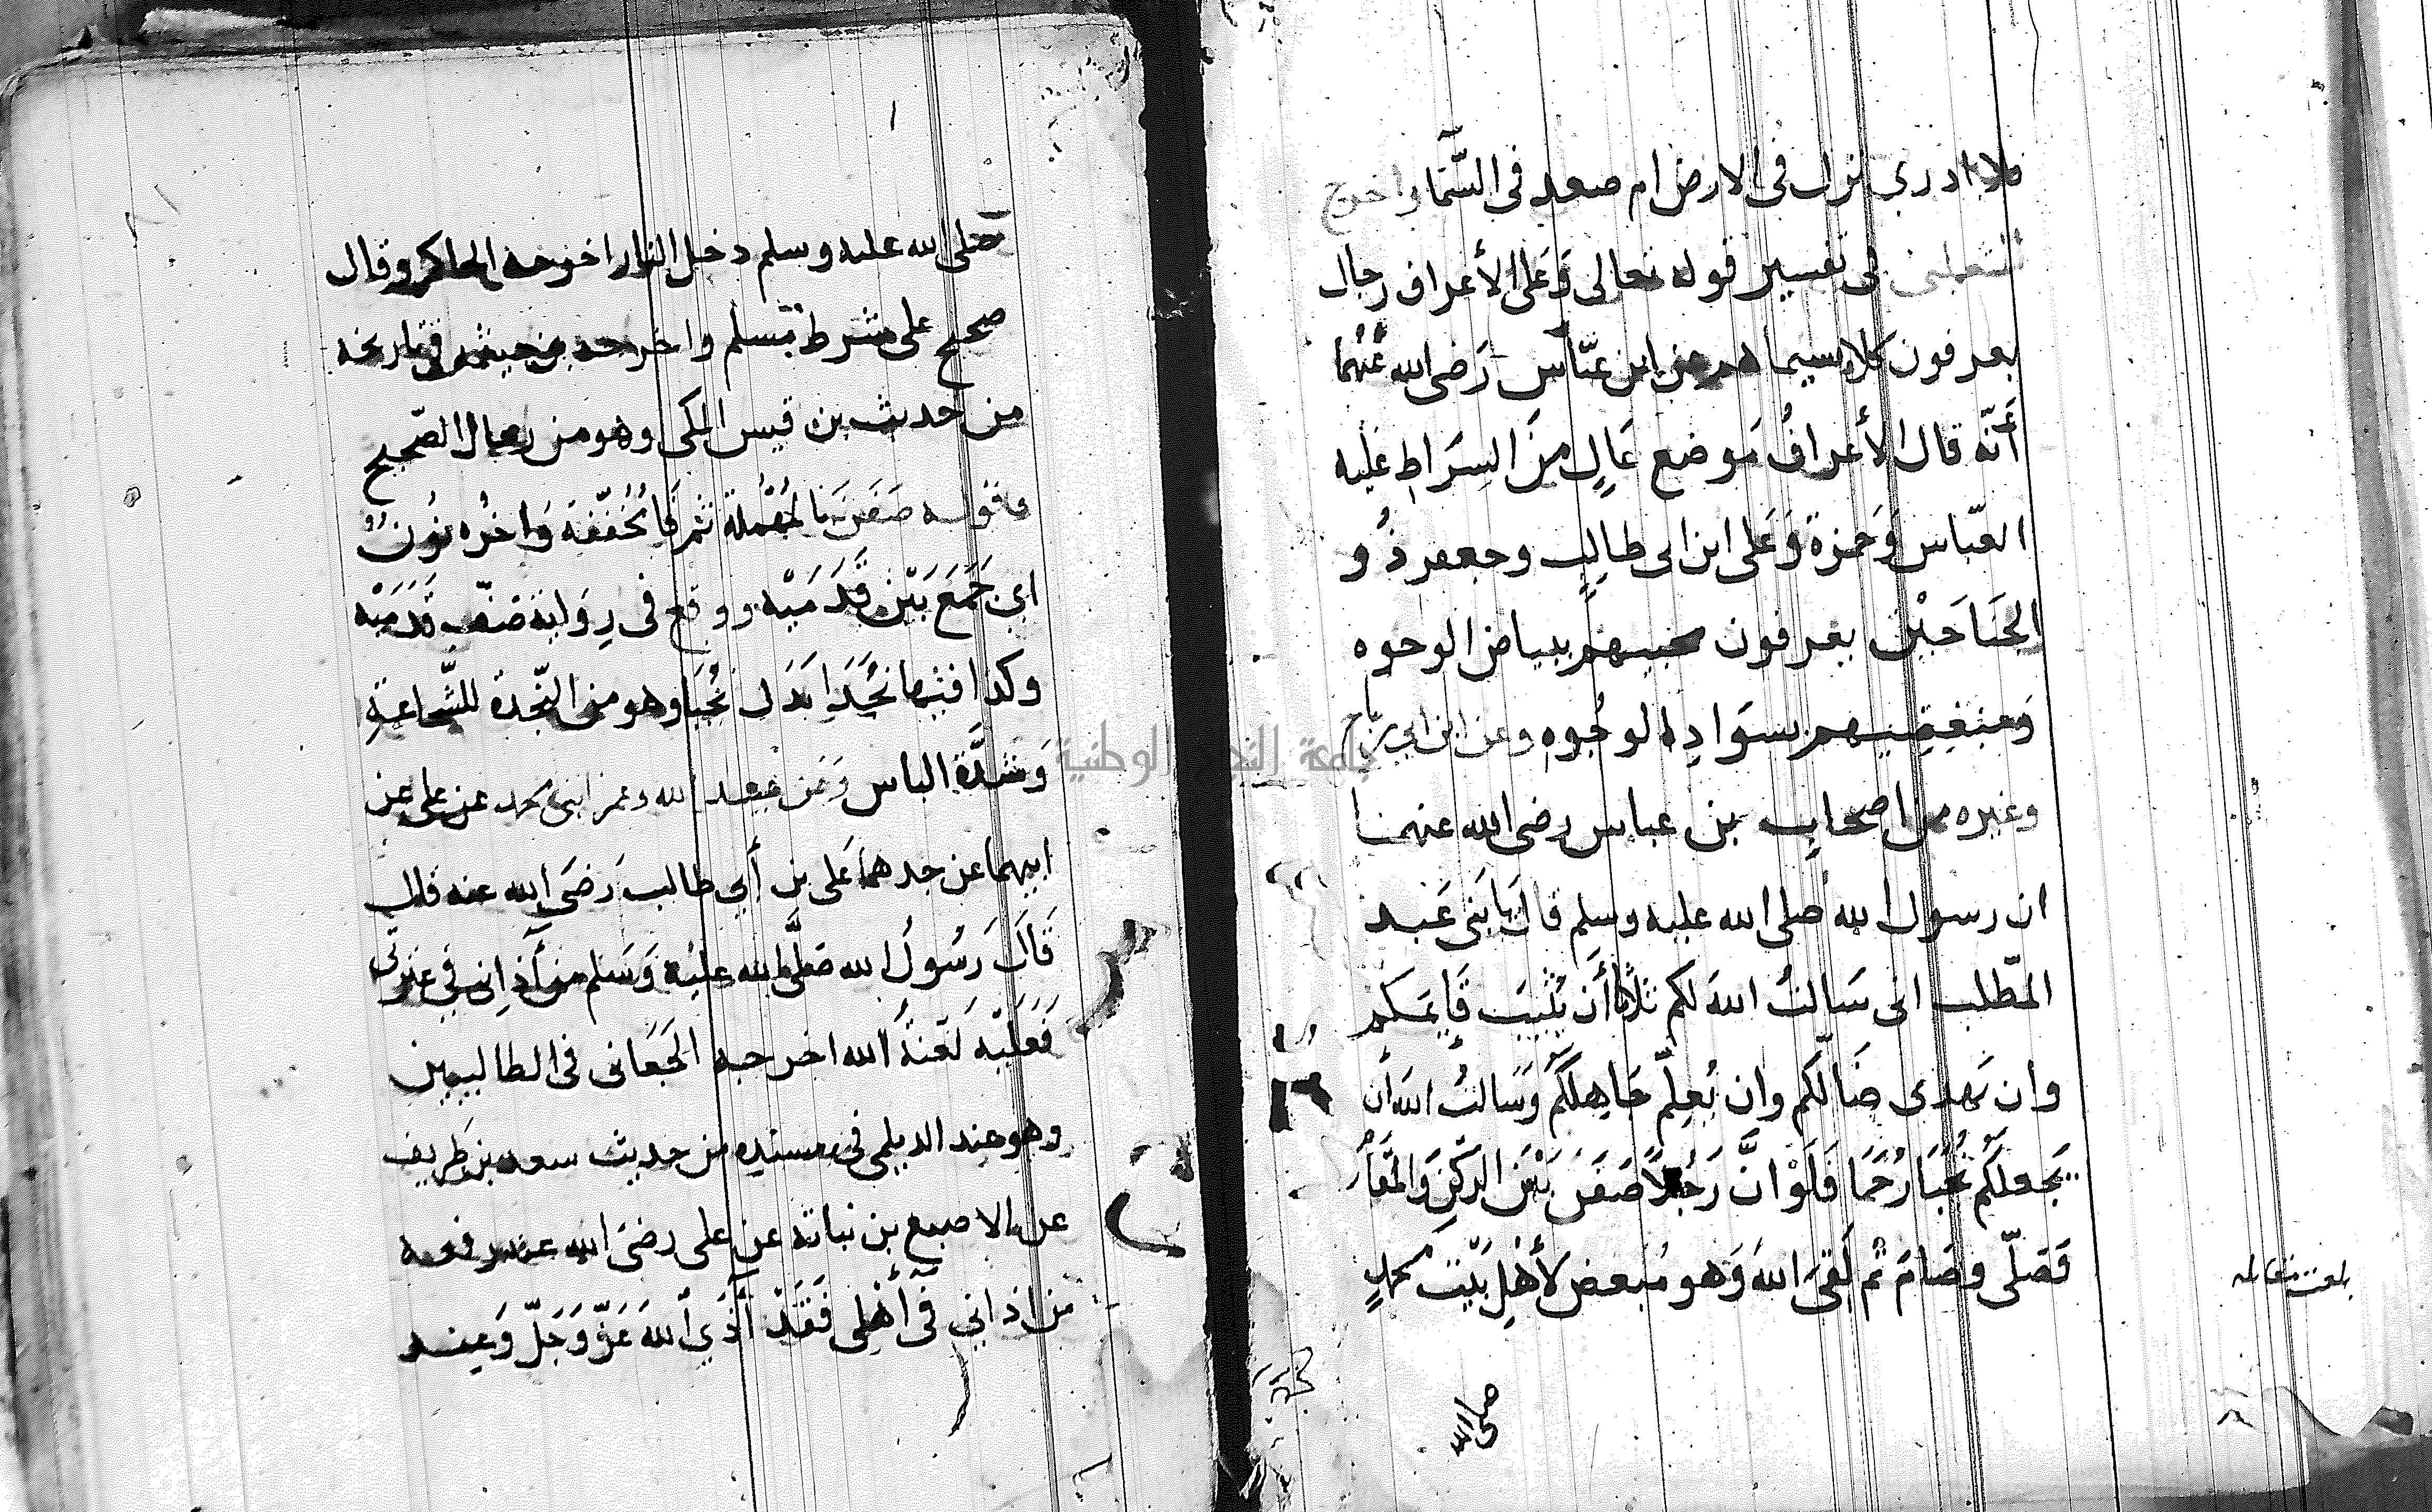 فلا ادري نزل في الارض ام صعد في السّما واخرج
الثعلبي في تفسير قوله تعالى وَعَلى الأعراف رجال
يعرفون كلا بسيماهم عن ابن عبّاس رَضى الله عنهما
أنّه قال الأعرافُ مَوضع عَالٍ منَ السِرَاطِ عليه
العبّاس وَحَمزة وَعَلى ابن ابى طالبٍ وجعفر ذُو
الجنَاحَيْن يعرفون محبيهم ببياض الوجوه
وَمبغضيهم بسوَادِ الوجُوه وعن ابن ابي رباح
وغيره من اصحاب بن عباس رضى الله عنهما
ان رسول الله صَلى الله عليه وسلم قال يَا بَنى عَبد
المطّلب انى سَالتُ اللهَ لكم ثلاثًا أَن يُثبِتَ قَايمكم
وان يَهدى ضَالّكم وان يُعلِّم جَاهِلكُم وَسَالتُ اللهَ أَن
يَجعلكُم نُجُبَا رُحَمَا فَلَوْ انَّ رَجُلاً صَفَنَ بَيْنَ الرّكنَ وَالمَقَام
فَصَلّى وصَامَ ثم لَقىَ اللهَ وَهو مُبغض لأَهْلِ بَيْت محمدٍ
صلى الله
بلغت مقابله
صَلى الله عليه وسلم دخل النار اخرجه الحاكم وقال
صحيح على شرط مسلم واخرجه بن خيثمه في تاريخه
من حديث بن قيس المكى وهو من رجال الصّحيح
وقوله صَفَن بالمُهْملة ثم فَا مُخُفّفة وَاخرُه نُونٌ
اي جَمَعَ بَيْن قَدَمَيْه ووقع في رِوَاية صَفّ قَدَمَيْه
وكذا فيها نُجُدَا بَدَل نُجُبَا وهو من النّجدة للشّجاعة
وَشدَّة الباس وَعَن عبد الله وعمر ابنى محمد عن على عن
ابيهما عن جدهما عَلى بن أبي طالب رَضىَ الله عنه قال
قَالَ رَسُولُ الله صَلَّى الله عليْه وَسَلم من آذانى فى عترتى
فَعَليْه لَعنةُ الله اخرجه الجَعَابى فى الطالبيين
وهو عند الديلمي في مسنده من حديث سعد بن طَريف
عن الاصبغ بن نباتة عن على رضى الله عنه رفعه
من اذاني فى أهْلى فَقَدْ آذَي اللهَ عَزّ وَجَلّ وَعِند
جامعة النجاح الوطنية